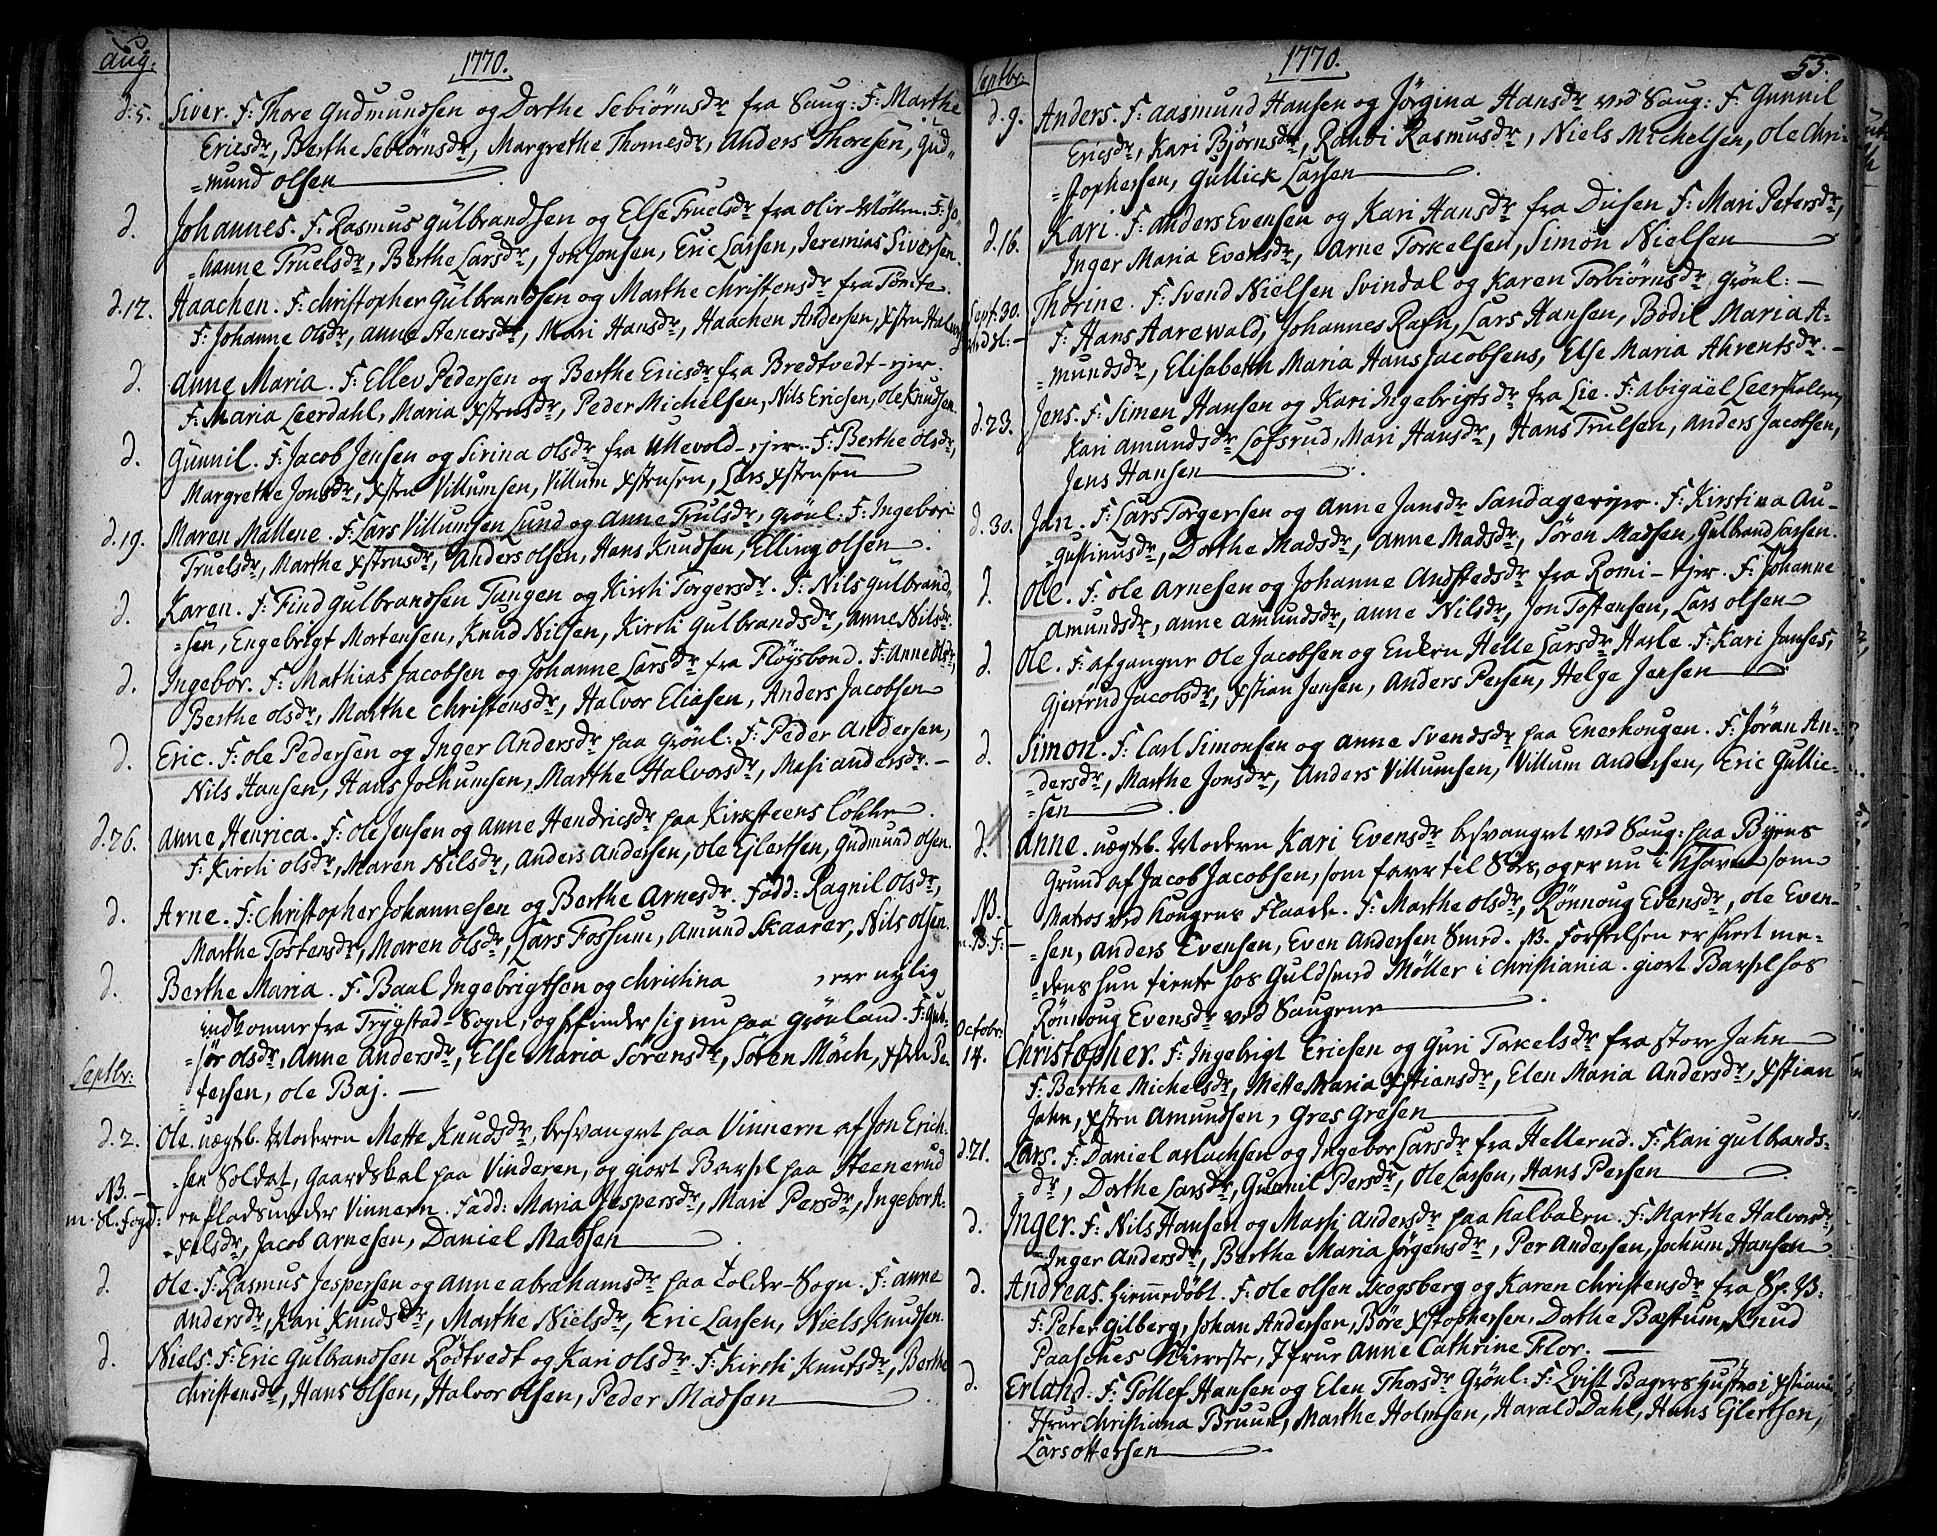 Aug.
1770.
d: 5. Siver. F: Thore Gudmundsen og Dorthe Sebiørnsdr fra Saug: F: Marthe
Ericsdr, Berthe Sebiørnsdr, Margrethe Thomesdr, Anders Thoresen, Gud„
„mund Olsen
d. Johannes. F: Rasmus Gulbrandsen og Else Truelsdr fra Olie-Møllen. F: Jo„
„hanne Truelsdr, Berthe Larsdr, Job Jonsen, Eric Larsen, Jeremias Siversen.
d. 12. Haachen. F: Christopher Gulbrandsen og Marthe Christensdr fra Tønte.
F: Johanne Olsdr, Anne Henersdr, Mari Hansdr, Haachen Andersen, Xsten
d. Anne Maria. F: Ellev Pedersen og Berthe Ericsdr fra Bredtvedt-ejer.
F: Maria Leerdahl, Maria Xstensdr, Peder Michelsen, Nils Ericsen, Ole Knudsen.
d. Gunnil. F: Jacob Jensen og Sirina Olsdr fra Ullevold-ejer. F: Berthe Olsdr,
Margrethe Jonsdr, Xsten Villumsen, Villum Xstensen, Lars Xstensen
d. 19. Maren Mallene. F: Lars Villumsen Lund og Anne Trulsdr, Grönl: F: Ingebor
Truelsdr, Marthe Xstensdr, Anders Olsen, Hans Knudsen, Elling Olsen.
d. Karen. F: Find Gulbrandsen Tangen og Kirsti Torgersdr. F: Nils Gulbrand„
„sen, Engebrigt Mortensen, Knud Nilsen, Kirsti Gulbrandsdr, Anne Nilsdr.
d. Ingebor. F: Mathias Jacobsen og Johanne Larsdr fra Pløysbond. F: Anne Olsdr,
Berthe Olsdr, Marthe Christensdr, Halvor Eliasen, Anders Jacobsen
d. Eric. F: Ole Pedersen og Inger Andersdr paa Grönl: F: Peder Andersen,
Nils Hansen, Hans Jochumsen, Marthe Halvorsdr, Masi Andersdr.
d. 26. Anne Henrica. F: Ole Jensen og Anne Hendricsdr paa Kirksteens Løkke.
F: Kirsti Olsdr, Maren Nilsdr, Anders Andersen, Ole Ejlertsen, Gudmund Olsen.
d. Arne. F: Christopher Johannesen og Berthe Arnesdr. Fadd: Ragnil Olsdr,
Marthe Tostensdr, Maren Olsdr, Lars Fossum, Amund Skaarer, Nils Olsen.
d. Berthe Maria. F: Baal Ingebrigtsen og Christina , ere nylig
indkomne fra Trygstad-Sogn, og befinder sig nu paa Grönland. F: Gub„
„jør Olsdr, Anne Andersdr, Else Maria Sørensdr, Søren Mørch, Xsten Pe„
„tersen, Ole Baj.
Septbr:
d. 2. Ole. uægteb. Moderen Mette Knudsdr, besvangret paa Vinnern af Jon Erich„
„sen Soldat, Gaardskal paa Vinderen, og giort Barsel paa Steenerud
NB. en Pladsunder Vinnern. Fadd: Maria Jespersdr, Mari Persdr, Ingebor A„
m. Sl. Fogd: „xelsdr, Jacob Arnesen, Daniel Madsen
d. Ole. F: Rasmus Jespersen og Anne Abrahamsdr paa Tolder-Sogn. F: Anne
Andersdr, Kari Knudsdr, Marthe Nielsdr, Eric Larsen, Niels Knudsen.
d. Niels. F: Eric Gulbrandsen Rödtvedt og Kari Olsdr. F: Kirsti Knutsdr, Berthe
Christensdr, Hans Olsen, Halvor Olsen, Peder Madsen
Septbr:
1770.
55.
d. 9. Anders. F: Aasmund Hansen og Jörgina Hansdr ved Saug: F: Gunnil
Ericsdr, Kari Bjørnsdr, Randi Rasmusdr, Niels Michelsen, Ole Chri„
„stophersen, Gullick Larsen
d. 16. Kari. F: Anders Evensen og Kari Hansdr fra Diisen F: Mari Petersdr,
Inger Maria Evensdr, Arne Torkelsen, Simon Nielsen
Sept. 30. Thorine. F: Svend Nielsen Svindal og Karen Torbiørnsdr Grönl:
F: Hans Aarewald, Johannes Rafn, Lars Hansen, Bodil Maria A„
„mundsdr, Elisabeth Maria Hans Jacobsens, Else Maria Ahrentsdr.
d. 23. Jens. F: Simen Hansen og Kari Ingebrigtsdr fra Lie. F: Abigäel Leerskallen,
Kari Amundsdr Lofsrud, Mari Hansdr, Hans Trulsen, Anders Jacobsen,
Jens Hansen
d. 30. Jan. F: Lars Torgersen og Anne Jansdr Sandagerejer. F: Kirstina Au„
„gustinusdr, Dorthe Madsdr, Anne Madsdr, Søren Madsen, Gulbrand Larsen.
d. Ole. F: Ole Arnesen og Johanne Andstedsdr fra Romi-ejer. F: Johanne
Amundsdr, Anne Amundsdr, Anne Nilsdr, Jon Tostensen, Lars Olsen
d. Ole. F: afgangne Ole Jacobsen og Enken Helle Larsdr Hasle. F: Kari Janses,
Gjertrud Jacobsdr, Xstian Jensen, Anders Persen, Helge Jensen
d. Simon. F: Carl Simonsen og Anne Svendsdr paa Enerhougen. F: Jöran An„
„dersdr, Marthe Jonsdr, Anders Villumsen, Villum Andersen, Eric Gullic„
„sen
d. Anne. uægteb. Moderen Kari Evensdr besvangret ved Saug: paa Byens
Grund af Jacob Jacobsen, som farer til Søes, og er nu i Kjøbhavn som
NB. Matros ved Kongens Flaade. F: Marthe Olsdr, Rønnoug Evensdr, Ole Even„
„sen, Anders Evensen, Even Andersen Smed. NB. Forseelsen er skeet me„
„dens hun tiente hos Guldsmed Møller i Christiania. giort Barsel hos
Rønnoug Evensdr ved Saugene
Octobr:
14. Christopher. F: Ingebrigt Ericsen og Guri Torkelsdr fra Store Jahn
F: Berthe Michelsdr, Mette Maria Xstiansdr, Elen Maria Andersdr, Xstian
Jahn, Xsten Amundsen, Gres Gresen
d. 21. Lars. F: Daniel Aslachsen og Ingebor Larsdr fra Hellerud. F: Kari Gulbrands„
„dr, Dorthe Larsdr, Gunnil Persdr, Ole Larsen, Hans Persen
d. Inger. F: Nils Hansen og Massi Andersdr paa Kalbaken. F: Marthe Halvorsdr,
Inger Andersdr, Berthe Maria Jørgensdr, Per Andersen, Jochum Hansen
d. Andreas. Hiemmedöbt. F: Ole Olsen Skogsberg og Karen Christensdr fra
F: Peter Gilberg, Johan Andersen, Børe Xstophersen, Dorthe Bastum, Knud
Paasches Kiereste, Jfrue Anne Cathrine Flor.
d. Erland. F: Tollef Hansen og Elen Thorsdr Grönl: F: Qvist Bagers Hustroe i
Jfrue Christiana Bruun, Marthe Holmsen, Harald Dahl, Hans Ejlertsen,
Lars Ottersen